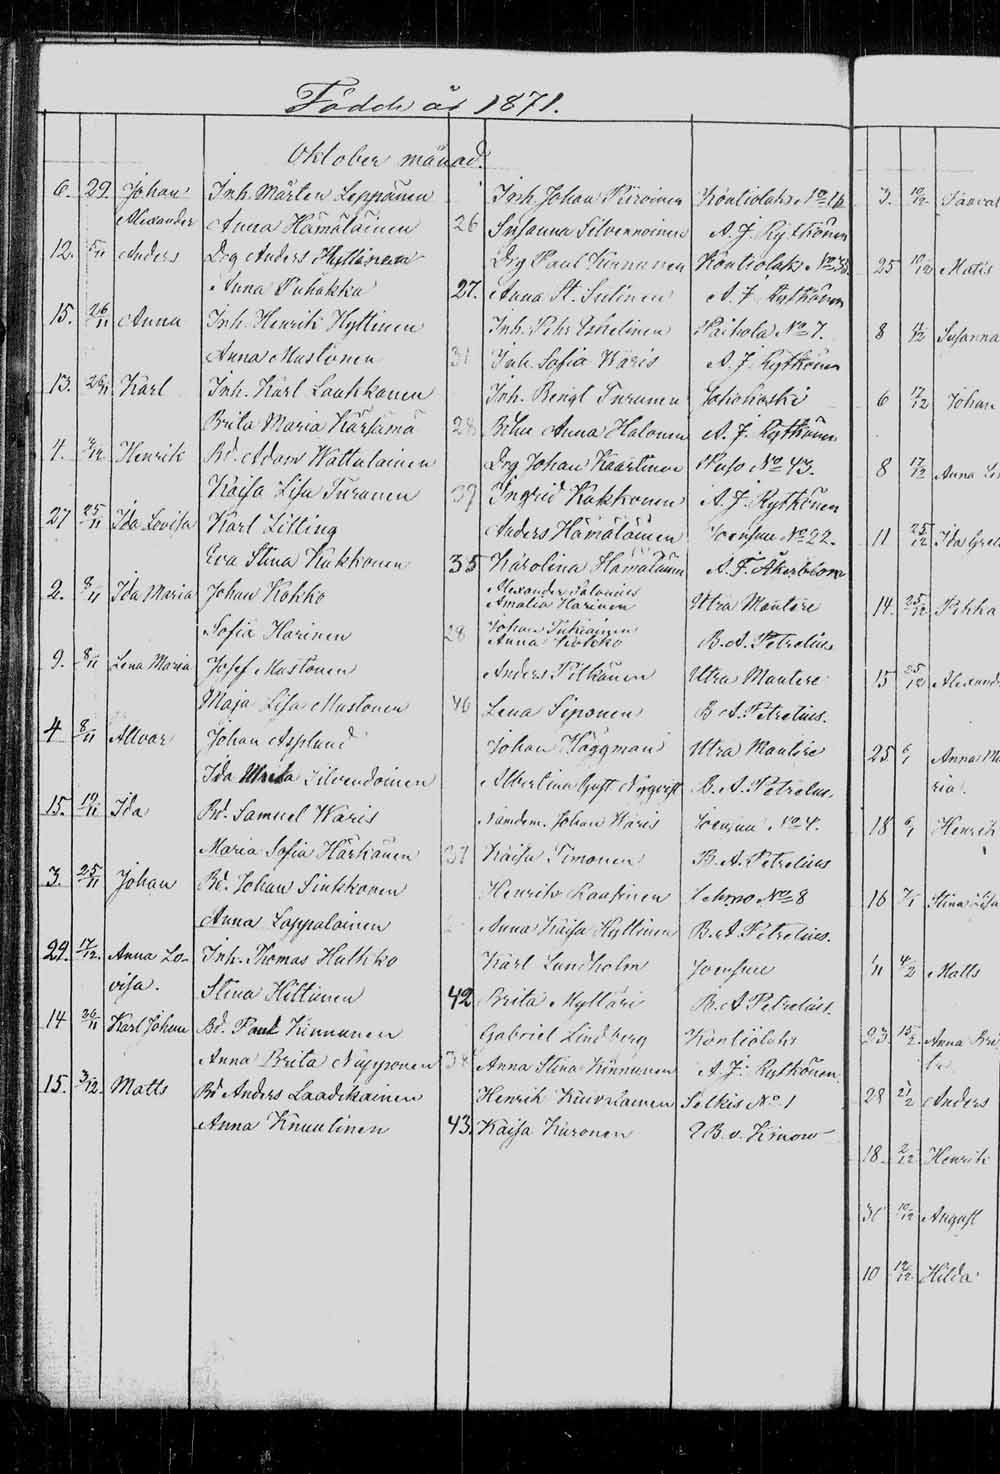 Födde år 1871.
Oktober månad.
6. 29. Johan Inh. Mårten Leppänen Inh. Johan Piiroinen Kontiolaks No 16
Alexander Anna Hämäläinen 26 Susanna Silvennoinen A. J. Rytkönen
12. 5/11 Anders Drg Anders Hyttinen Drg Paul Kinnunen Kontiolaks No 38
Anna Puhakka 27. Anna St. Sutinen A. J. Rytkönen
15. 26/11 Anna Inh. Henrik Hyttinen Inh. Pehr Eskelinen Paihola No 7.
Anna Mustonen 31 Inh. Sofia Waris A. J. Rytkönen
13. 26/11 Karl Inh. Karl Laukkanen Inh. Bengt Turunen Jakokoski
Brita Maria Kärsämä 28 Anna Halonen A. J. Rytkönen
4. 3/12 Henrik Bd. Adam Wattulainen Drg Johan Kaartinen Puso No 43.
Kaisa Lisa Turunen 39 Ingrid Kukkonen A. J. Rytkönen
27 25/11 Ida Lovisa Karl Litting Anders Hämäläinen Joensuu No 22.
Eva Stina Kukkonen 35 Karolina Hämäläinen A. F. Åkerblom
2. 8/11 Ida Maria Johan Kokko Alexander Salonius
Amalia Harinen Utra Mantere
Sofia Harinen 28 Johan Tukiainen
Anna Kokko B. A. Petrelius
9. 8/11 Lena Maria Josef Mustonen Anders Pitkänen Utra Mantere
Maja Lisa Mustonen 40 Lena Siponen B. A. Petrelius.
4 8/11 Altvar Johan Asplund Johan Häggman Utra Mantere
Ida Silvendoinen Albertina Gust. Nyqvist B. A. Petrelius.
15. 19/11 Ida Bd. Samuel Waris Nämdem. Johan Waris Joensuu No 4.
Maria Sofia Härkönen 37 Kaisa Timonen B. A. Petrelius
3. 25/11 Johan Bd. Johan Sinkkonen Henrik Kaasinen Lehmo No 8
Anna Lappalainen Anna Kaisa Hyttinen B. A Petrelius.
29. 17/12. Anna Lo- Inh. Thomas Hukko Karl Lundholm Joensuu
visa. Stina Hiltunen 42 Brita Myttäri B. A Petrelius.
14 26/11 Karl Johan Bd. Paul Kinnunen Gabriel Lindberg Kontiolaks
Anna Brita Nupponen 38 Anna Stina Kinnunen A. J. Rytkönen
15. 3/12. Matts Bd Anders Laadikainen Henrik Kuivalainen Selkis No 1
Anna Knuutinen 43. Kaisa Kuronen
3. 10/12
25 10/12 Matts
8 Susanna
6 17/12 Johan
8 17/12 Anna
11 25/12 Ida Gret
14. 25/12 Pekka
15 25/12 Alexand
25 6/1 Anna Ma
ria.
18 6/1 Henrik
16 7/1 Stina Lisa
11 4/2 Matts
23. Anna
28 21/2 Anders
18. 2/12 Henrik
31 10/12 August
10 Hilda